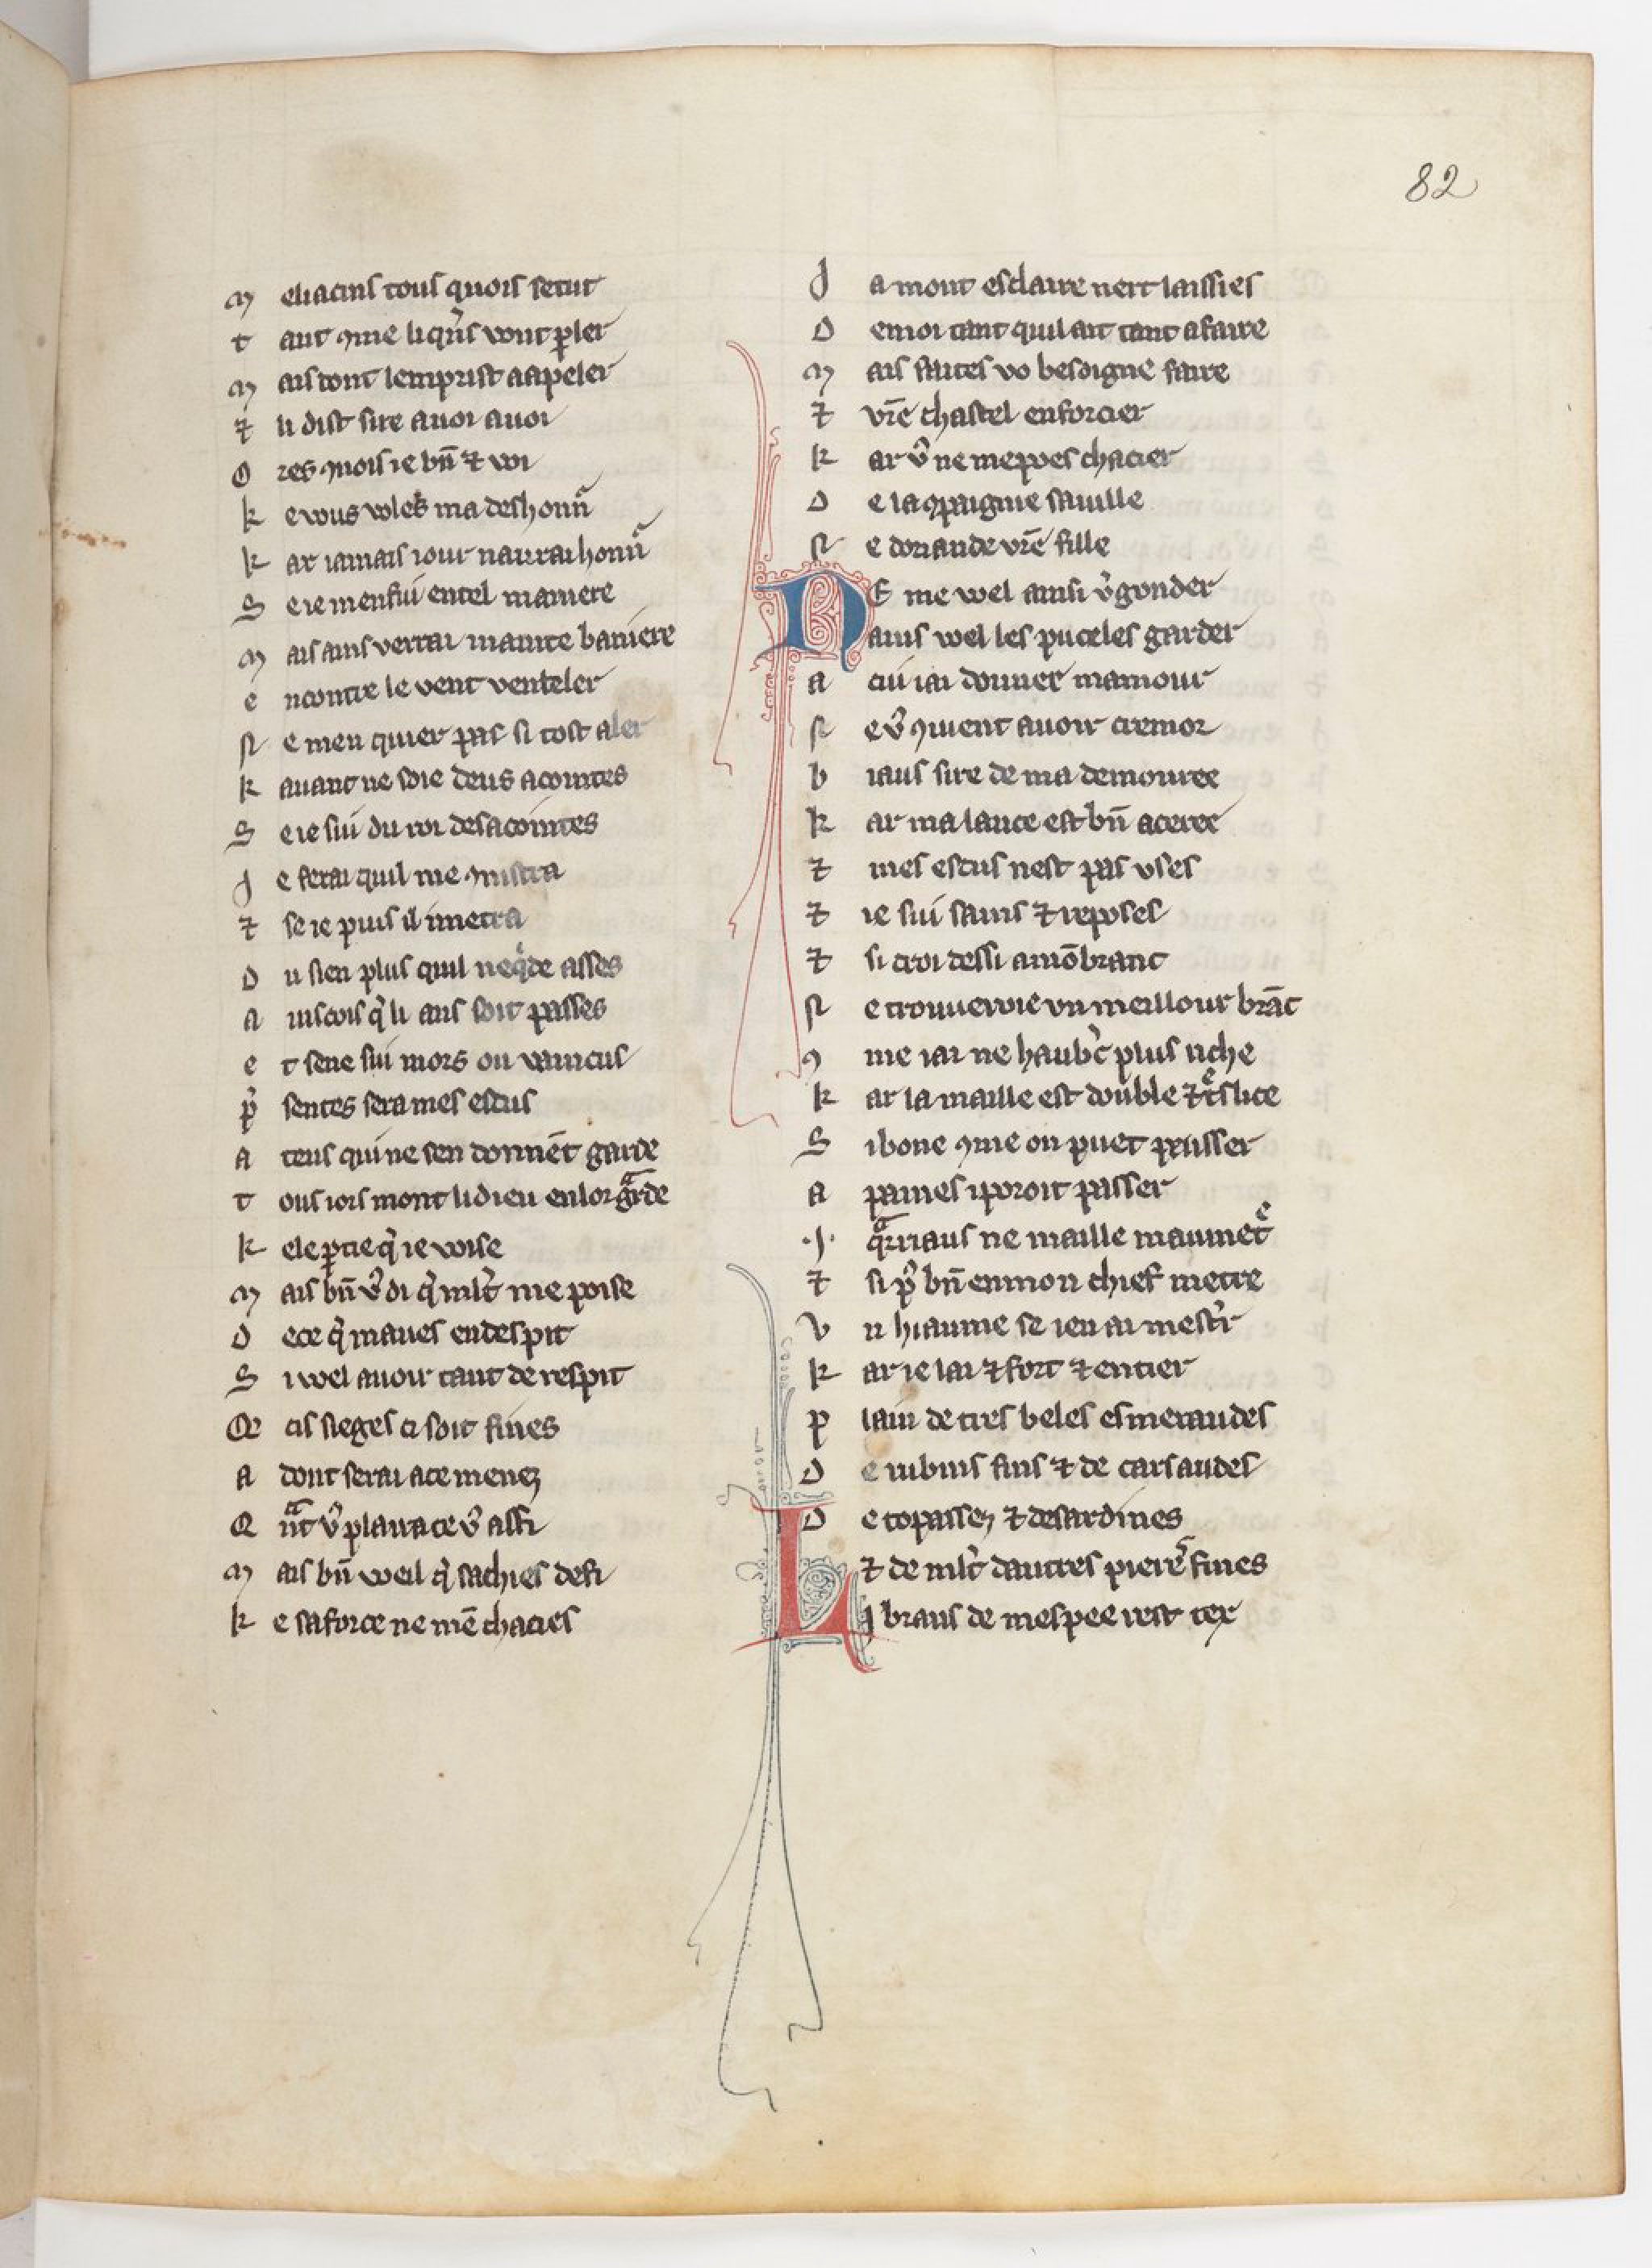 82
M eliacins tous quois se tut
t ant 9me li q̃ns vout ꝑler
M ais dont lemprist a apeler
⁊ li dist sire auoi auoi
O res 9nois ie bn̄ ⁊ voi
k e vous voles ma deshonn̉
k ar iamais iour naurai honn̉
S e ie men fui en tel maniere
M ais ains verrai mainte baniere
e ncontre le vent venteler
N e men quier pas si tost aler
k auant ne soie deus acointes
S e ie sui du roi desacointes
J e ferai quil me 9nistra
⁊ se ie puis il i metra
D u sien plus quil ne q̉de asses
A inscois q̉ li ans soit passes
e t se ne sui mors ou vaincus
p̉ sentes sera mes escus
A teus qui ne sen donnēt garde
t ous iors mont li dieu en lor gͣrde
k ele ꝑtie q̉ ie voise
M ais bn̄ v̉ di q̉ ml̉t me poise
D e ce q̉ maues en despit
S i voel auoir tant de respit
Q̉ cis sieges ci soit fines
A dont serai a ce menez
Q nͣt v̉ plaira ce v̉ assi
M ais bn̄ weil q̉ sachies de fi
k e sa force ne mē chacies
J a mont esclaire nert laissies
D e moi tant quil ait tant a faire
M ais faites vo besoigne faire
⁊ vr̄e chastel enforcier
k ar v̉ ne me poes chacier
D e la 9paignie sauille
N e doriande vr̄e fille
NE me voel ainsi v̉gonder
ains voel les puceles garder
A cui iai donner mamour
N e v̉ 9uient auoir cremor
b iaus sire de ma demouree
k ar ma lance est bn̄ aceree
⁊ mes escus nest pas vses
⁊ ie sui sains ⁊ reposes
⁊ si croi dessi a mōbranc
N e trouueroie vn meillour brāc
9 me iai ne haub̉c plus riche
k ar la maille est double ⁊ tͤslice
S i bone 9me on puet pxusser
A paines i poroit passer
.J. qͣrriaus ne maille maumetͤ
⁊ si p̉ bn̄ en mon chief metre
V n hiaume se ien ai mest̉r
k ar ie lai ⁊ fort ⁊ entier
p lain de tres beles esmeraudes
D e rubins fins ⁊ de carsaudes
D e topassez ⁊ de sardines
⁊ de ml̉t dautres piereˢ fines
LJ brans de mespee rest tex